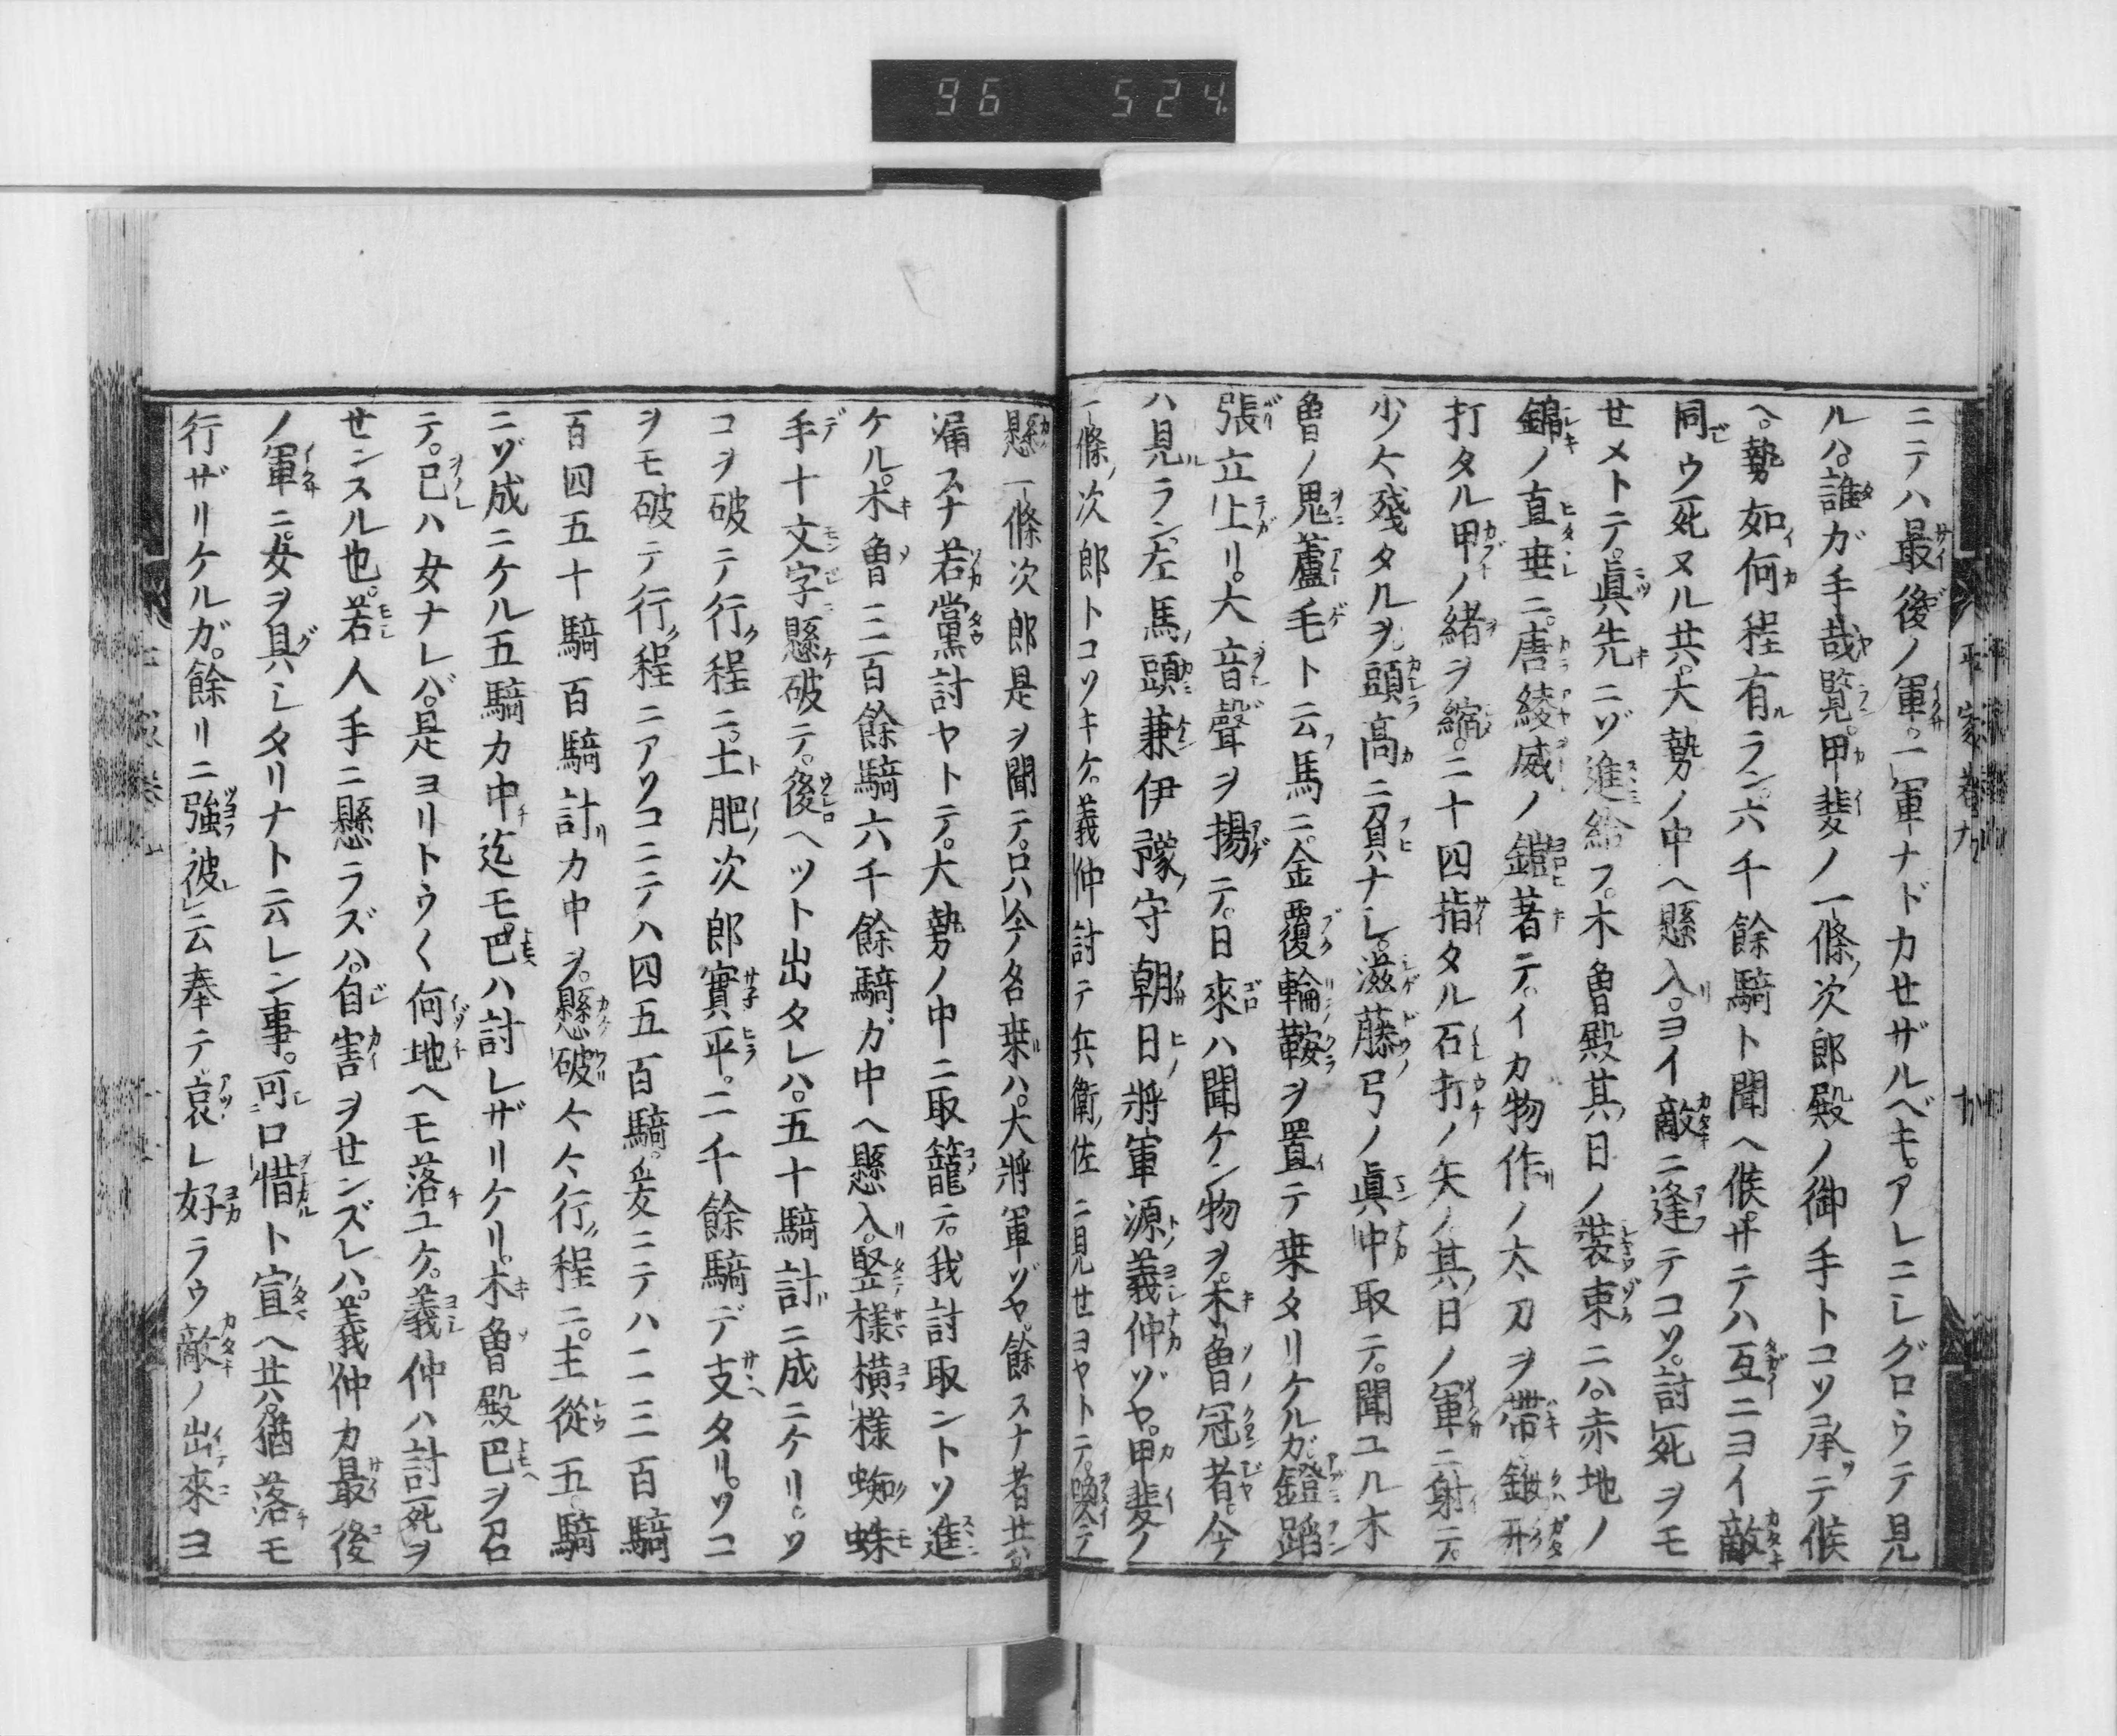 96 524
ニテハ最後ノ軍。一軍ナドカセザルベキ。アレニシグロウテ見
ルハ。誰ガ手哉覧。甲斐ノ一條次郎殿ノ御手トコソ承テ候
ヘ。勢如何程有ラン。六千餘騎ト聞ヘ候。サテハ互ニヨイ敵
同ウ死ヌル共。大勢ノ中ヘ懸入。ヨイ敵ニ逢テコソ。討死ヲモ
セメトテ。眞先ニゾ進給フ。木曽殿其日ノ装束ニハ。赤地ノ
錦ノ直垂ニ。唐綾威ノ鎧著テ。イカ物作ノ大刀ヲ帯。鍬形
打タル甲ノ緒ヲ縮。二十四指タル石打ノ矢ノ其日ノ軍ニ射テ。
少々殘タルヲ。頭高ニ負ナシ。滋藤弓ノ眞中取テ。聞ユル木
曽ノ鬼蘆毛ト云馬ニ。金覆輪鞍ヲ置テ乗タリケルガ。鐙蹈
張立上リ。大音聲ヲ揚テ。日來ハ聞ケン物ヲ。木曽冠者。今
ハ見ラン。左馬頭兼伊豫守朝日將軍源義仲ゾヤ。甲斐ノ
一條次郎トコソキケ。義仲討テ兵衛佐ニ見セヨヤトテ。喚テ
懸一條次郎是ヲ聞テ。只今名乗ハ。大將軍ゾヤ。餘スナ者共
漏スナ若黨討ヤトテ。大勢ノ中ニ取籠テ。我討取ントソ進
ケル。木曽三百餘騎六千餘騎ガ中ヘ懸入。竪様横様蜘蛛
手十文字懸破テ。後ヘツト出タレハ。五十騎計ニ成ニケリ。ソ
コヲ破テ行程ニ。土肥次郎實平。二千餘騎デ支タリ。ソコ
ヲモ破テ行程ニアソコニテハ四五百騎。爰ニテハ二三百騎
百四五十騎百騎計カ中ヲ。懸破々々行程ニ。主從五騎
ニゾ成ニケル五騎カ中迄モ。巴ハ討レザリケリ。木曽殿巴ヲ召
テ。己ハ女ナレバ。是ヨリトウく何地ヘモ落ユケ。義仲ハ討死ヲ
センスル也。若人手ニ懸ラズハ。自害ヲセンズレハ。義仲カ最後
ノ軍ニ。女ヲ具シタリナト云レン事。可口惜ト宣ヘ共。猶落モ
行ザリケルガ。餘リニ強被云奉テ哀レ好ラウ敵ノ出來ヨ